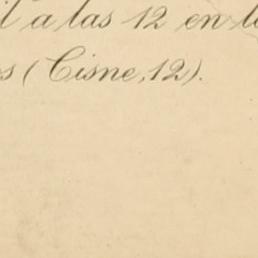 l a las 12 en l
s (Cisne, 12).